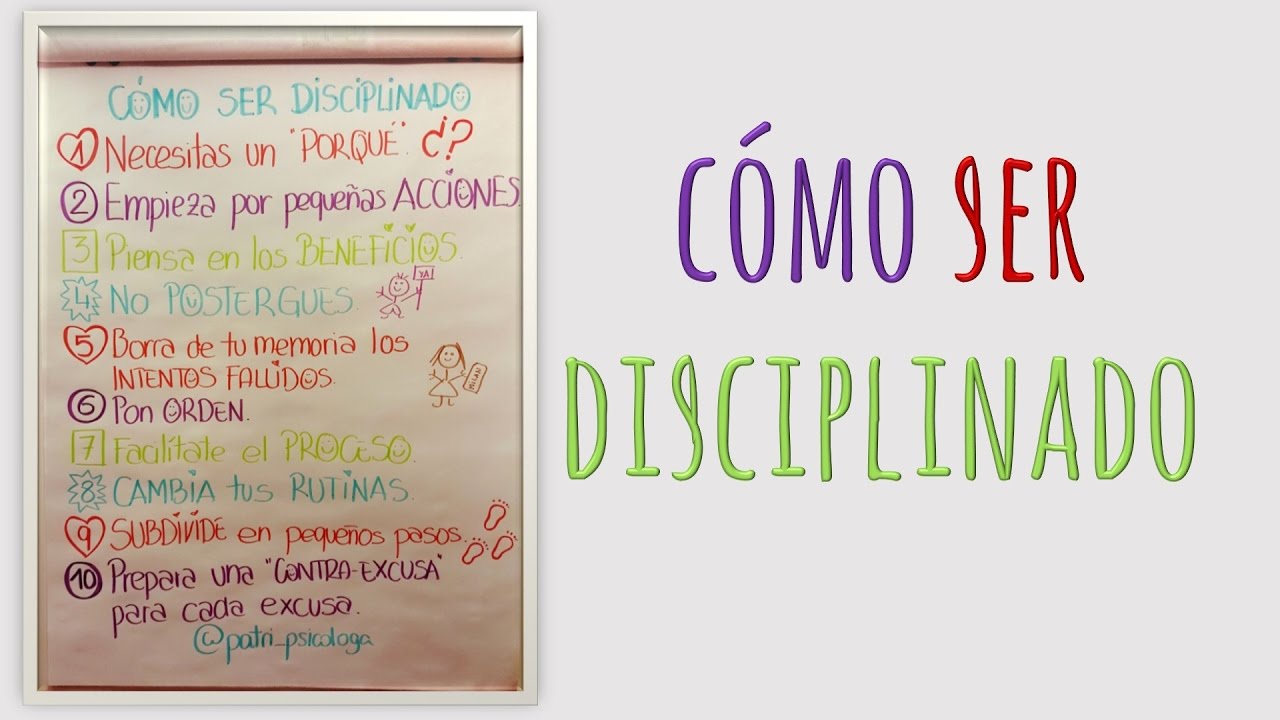 CÓMO SER DISCIPLINADO
1 Necesitas un "PORQUÉ". ¿?
2 Empieza por pequeñas ACCIONES.
3 Piensa en los BENEFICIOS.
4 NO POSTERGUES.
YA!
5 Borra de tu memoria los
INTENTOS FALLIDOS.
6 Pon ORDEN.
7 Facilítate el PROCESO.
8 CAMBIA tus RUTINAS.
9 SUBDIVIDE en pequeños pasos.
10 Prepara una "CONTRA-EXCUSA"
para cada excusa.
@patri_psicologa
CÓMO SER
DISCIPLINADO